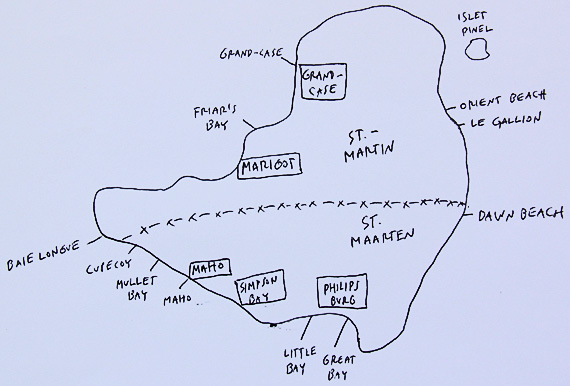 ISLET
PINEL
GRAND-CASE
GRAND-
CASE
FRIAR'S
BAY
ORIENT BEACH
LE GALLION
ST.-
MARTIN
MARIGOT
DAWN BEACH
ST.
MAARTEN
BAIE LONGUE
CUPECOY
MULLET
BAY
MAHO
MAHO
SIMPSON
BAY
PHILIPS
BURG
LITTLE
BAY
GREAT
BAY